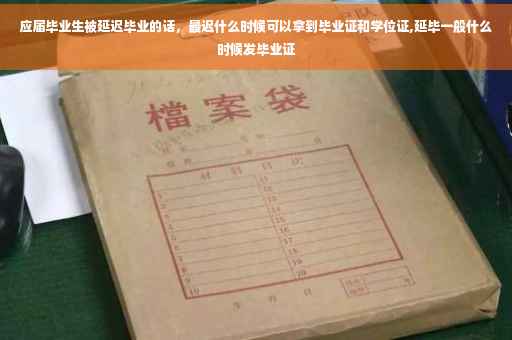 应届毕业生被延迟毕业的话，最迟什么时候可以拿到毕业证和学位证,延毕一般什么
时候发毕业证
檔案袋
材料目次
1
2
3
4
5
6
7
8
9
10
11
12
13
14
15
16
17
18
19
20
年 月 日